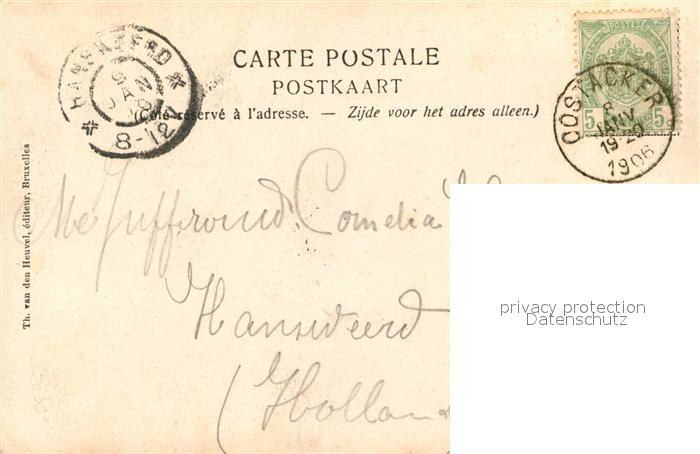 CARTE POSTALE
POSTKAART
(Côté réservé à l'adresse. — Zijde voor het adres alleen.)
HANSWEERD
8-12V
POSTES
5 5
OOSTACKER
8
JANV
19-20
1906
Th. van den Heuvel, éditeur, Bruxelles
Me Juffroud. Cornelia
Hansweerd
(Hollan
privacy protection
Datenschutz